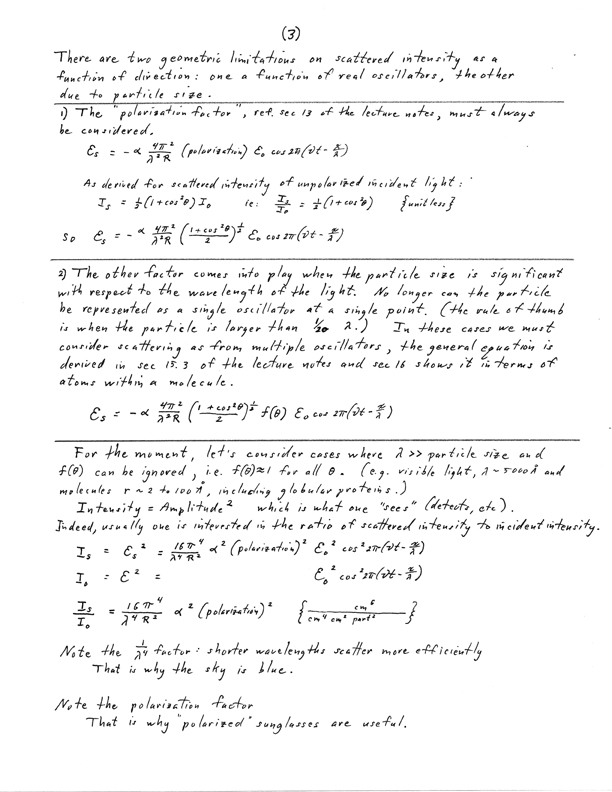 (3)
There are two geometric limitations on scattered intensity as a
function of direction: one a function of real oscillators, the other
due to particle size.
1) The "polarization factor", ref. sec 13 of the lecture notes, must always
be considered.
Ɛs = -α 4π²/λ²R (polarization) Ɛo cos 2π(νt - x/λ)
As derived for scattered intensity of unpolarized incident light:
Is = ½(1+cos²θ) Io ie: Is/Io = ½(1+cos²θ) {unitless}
so Ɛs = -α 4π²/λ²R ((1+cos²θ)/2)^½ Ɛo cos 2π(νt - x/λ)
2) The other factor comes into play when the particle size is significant
with respect to the wavelength of the light. No longer can the particle
be represented as a single oscillator at a single point. (the rule of thumb
is when the particle is larger than 1/20 λ.) In these cases we must
consider scattering as from multiple oscillators, the general equation is
derived in sec 15.3 of the lecture notes and sec 16 shows it in terms of
atoms within a molecule.
Ɛs = -α 4π²/λ²R ((1+cos²θ)/2)^½ f(θ) Ɛo cos 2π(νt - x/λ)
For the moment, let's consider cases where λ >> particle size and
f(θ) can be ignored, i.e. f(θ)≈1 for all θ. (e.g. visible light, λ ~ 5000 Å and
molecules r ~ 2 to 100 Å, including globular proteins.)
Intensity = Amplitude² which is what one "sees" (detects, etc).
Indeed, usually one is interested in the ratio of scattered intensity to incident intensity.
Is = Ɛs² = 16π⁴/λ⁴R² α² (polarization)² Ɛo² cos² 2π(νt - x/λ)
Io = Ɛ² = Ɛo² cos² 2π(νt - x/λ)
Is/Io = 16π⁴/λ⁴R² α² (polarization)² {cm⁶/cm⁴ cm² part²}
Note the 1/λ⁴ factor: shorter wavelengths scatter more efficiently
That is why the sky is blue.
Note the polarization factor
That is why "polarized" sunglasses are useful.